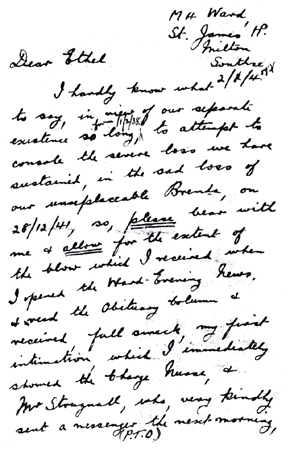 MH Ward,
St. James H.
Milton
Southsea
Dear Ethel
I hardly know what
to say, in view of our separate
existence so long, to attempt to
console the severe loss we have
sustained, in the sad loss of
our unreplaceable Brenda, on
28/12/41, so, please bear with
me & allow for the extent of
the blow which I received when
I opened the Ward-Evening News,
& read the Obituary Column &
received, full smack, my first
intimation, which I, immediately
showed the Charge Nurse, &
Mr Strugnall, who, very kindly
sent a messenger the next morning,
(P.T.O)